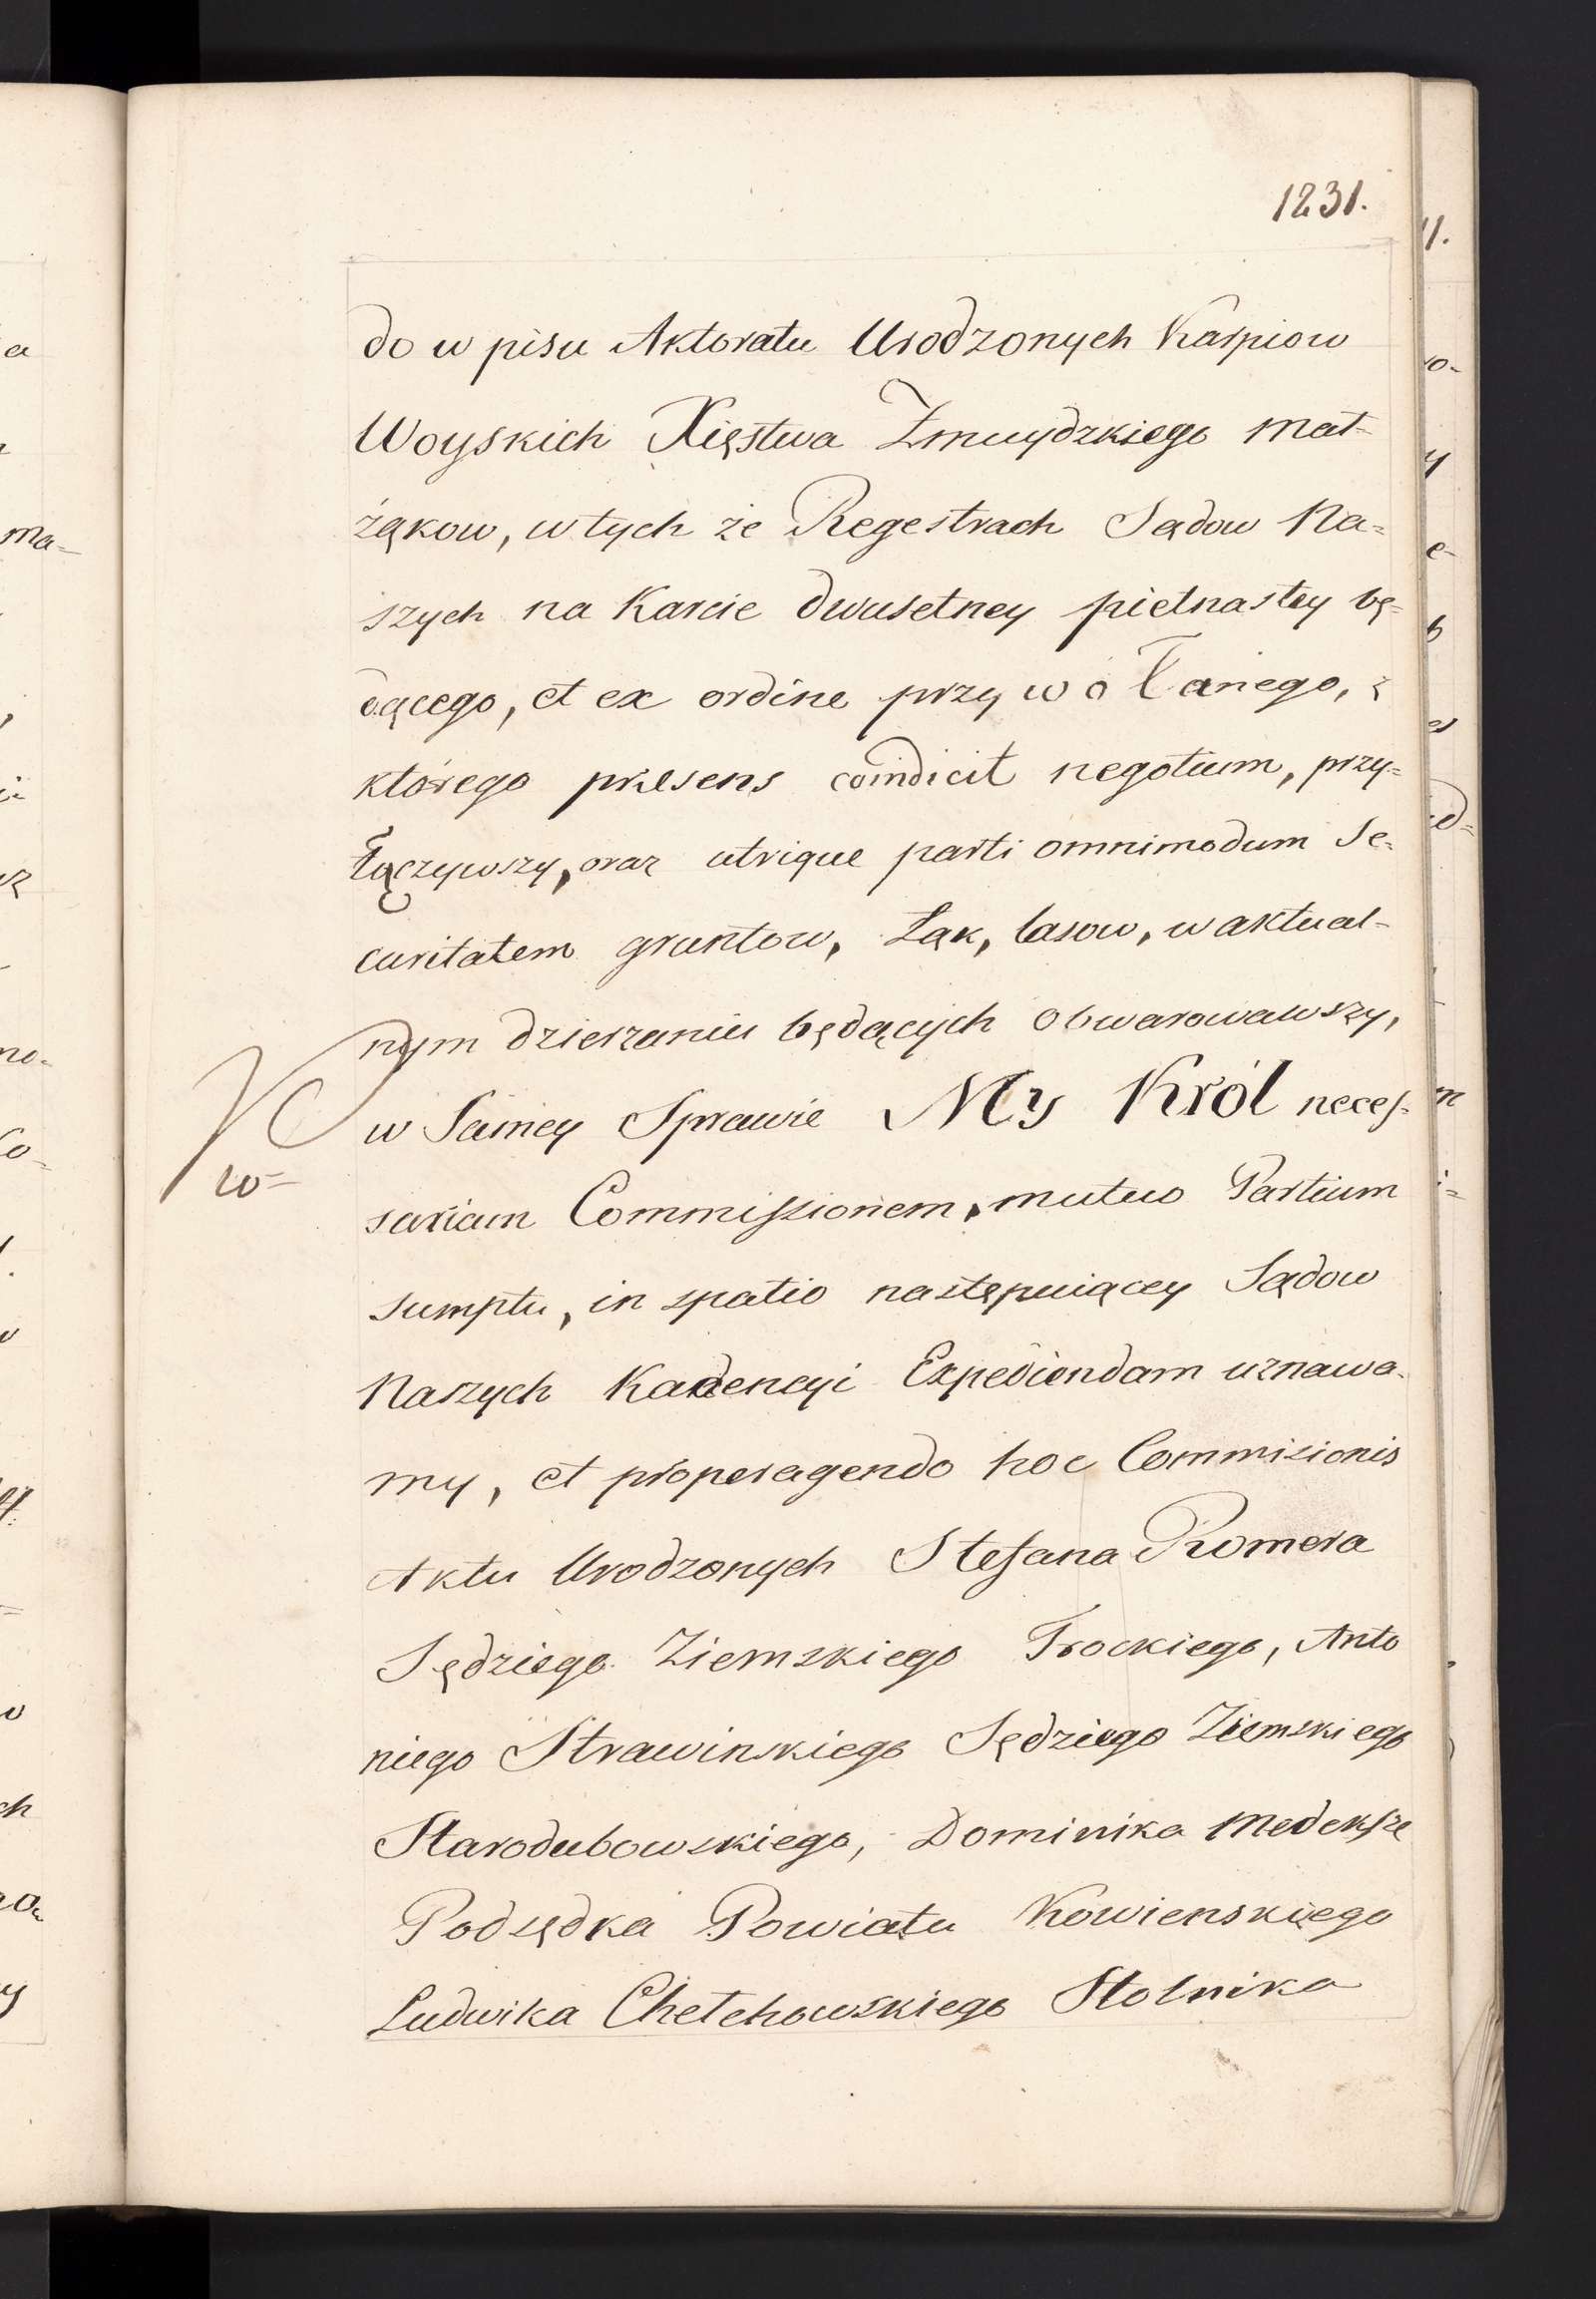 1231.
do w pisu Aktoratu Urodzonych Karpiow
Woyskich Xięstwa Zmuydzkiego mał-
żąkow, w tych że Regestrach Sądow Na=
szych na Karcie dwusetney pietnastey bę=
dącego, et ex ordine przy wołanego, z
którego presens condicit negotium, przy=
łączywszy, oraz utrique parti omnimodum Se=
curitatem gruntow, Łąk, lasow, w aktual-
nym dzierzaniu będących obwarowawszy,
w Samey Sprawie My Król necess=
w=
sariam Commissionem, mutuo Partium
sumptu, in spatio następuiącey Sądow
Naszych Kadencyi Expediendam uznawa-
my, et properagendo hoc Commisionis
Aktu Urodzonych Stefana Romera
Sędziego Ziemskiego Trockiego, Anto
niego Strawinskiego Sędziego Ziemskiego
Starodubowskiego, Dominika Medeksze
Podsędka Powiatu Kowienskiego
Ludwika Chełchowskiego Stolnika